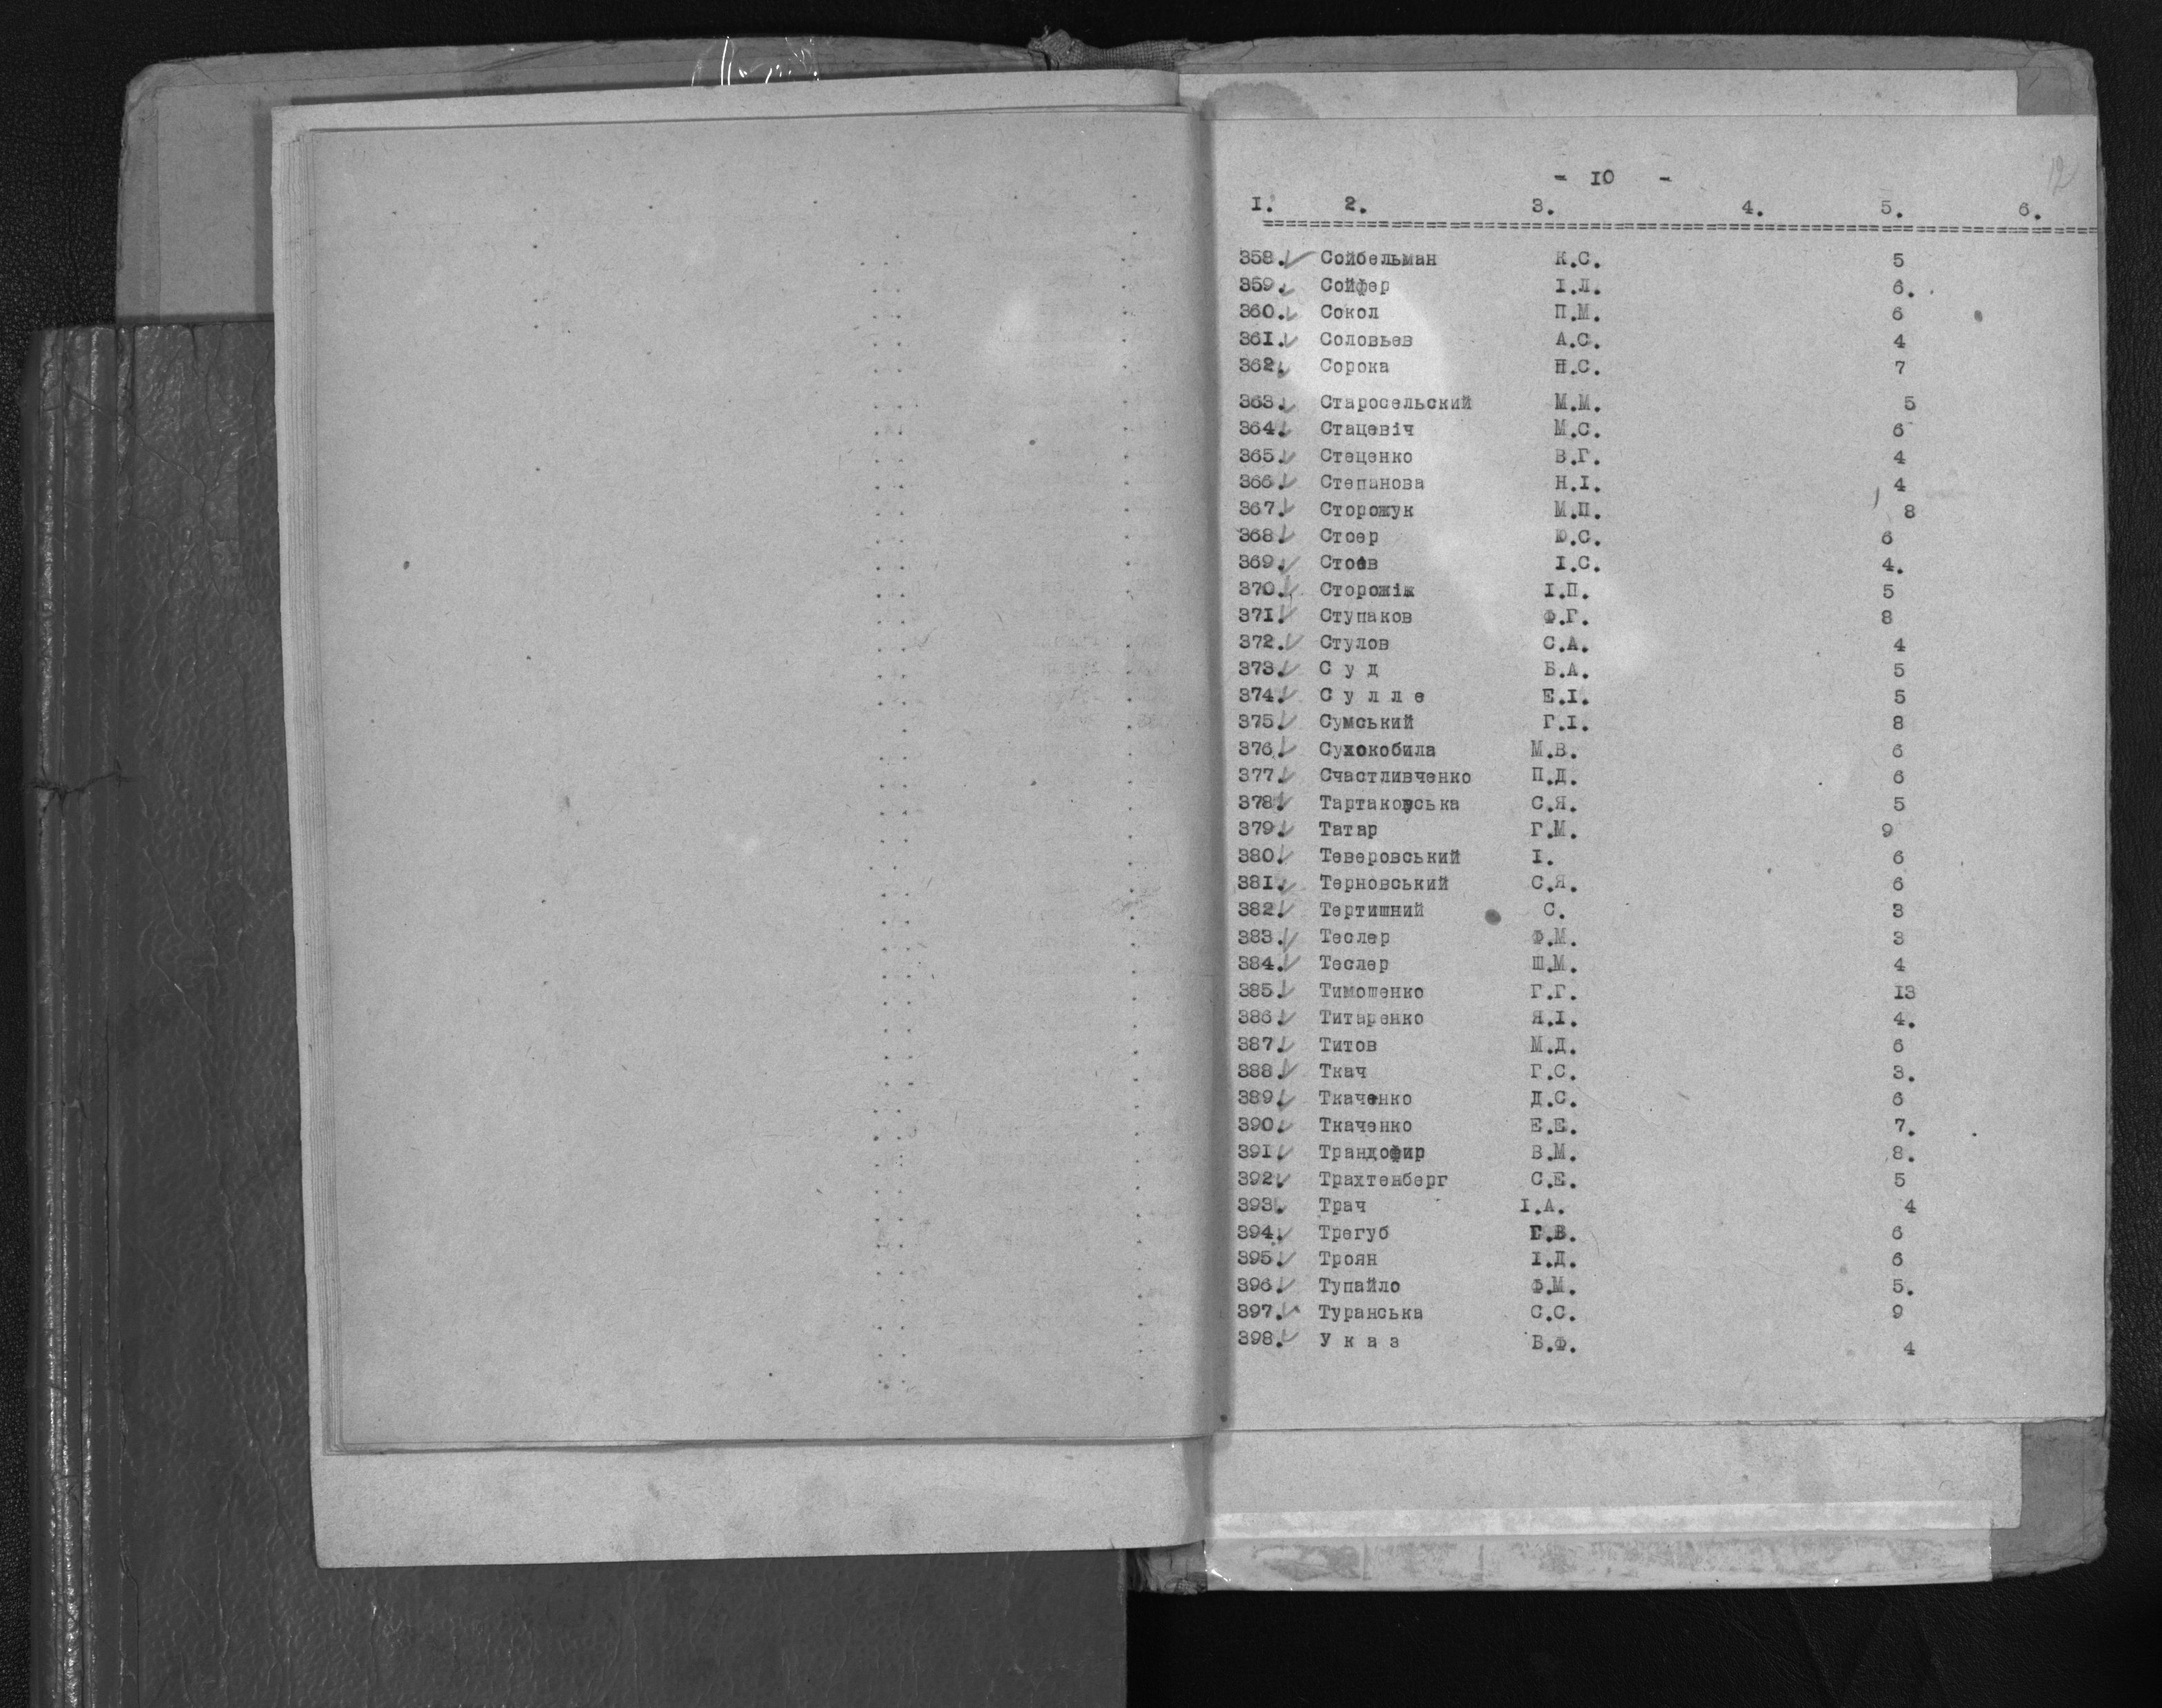 12
- 10 -
I. 2. 3. 4. 5. 6.
358. Сойбельман К.С. 5
359. Сойфер І.Л. 6.
360. Сокол П.М. 6
361. Соловьев А.С. 4
362. Сорока Н.С. 7
363. Старосельский М.М. 5
364. Стацевіч М.С. 6
365. Стеценко В.Г. 4
366. Степанова Н.І. 4
367. Сторожук М.П. 8
368. Стоер Ю.С. 6
369. Стоєв І.С. 4.
370. Сторожіж І.П. 5
371. Ступаков Ф.Г. 8
372. Стулов С.А. 4
373. С у д Б.А. 5
374. С у л л е Е.І. 5
375. Сумський Г.І. 8
376. Сухокобила М.В. 6
377. Счастливченко П.Д. 6
378. Тартаковська С.Я. 5
379. Татар Г.М. 9
380. Теверовський І. 6
381. Терновський С.Я. 6
382. Тертишний С. 3
383. Теслер Ф.М. 3
384. Теслер Ш.М. 4
385. Тимошенко Г.Г. I3
386. Титаренко Я.І. 4.
387. Титов М.Д. 6
388. Ткач Г.С. 3.
389. Ткаченко Д.С. 6
390. Ткаченко Е.Е. 7.
391. Трандофир В.М. 8.
392. Трахтенберг С.Е. 5
393. Трач І.А. 4
394. Трегуб Г.В. 6
395. Троян І.Д. 6
396. Тупайло Ф.М. 5.
397. Туранська С.С. 9
398. У к а з В.Ф. 4